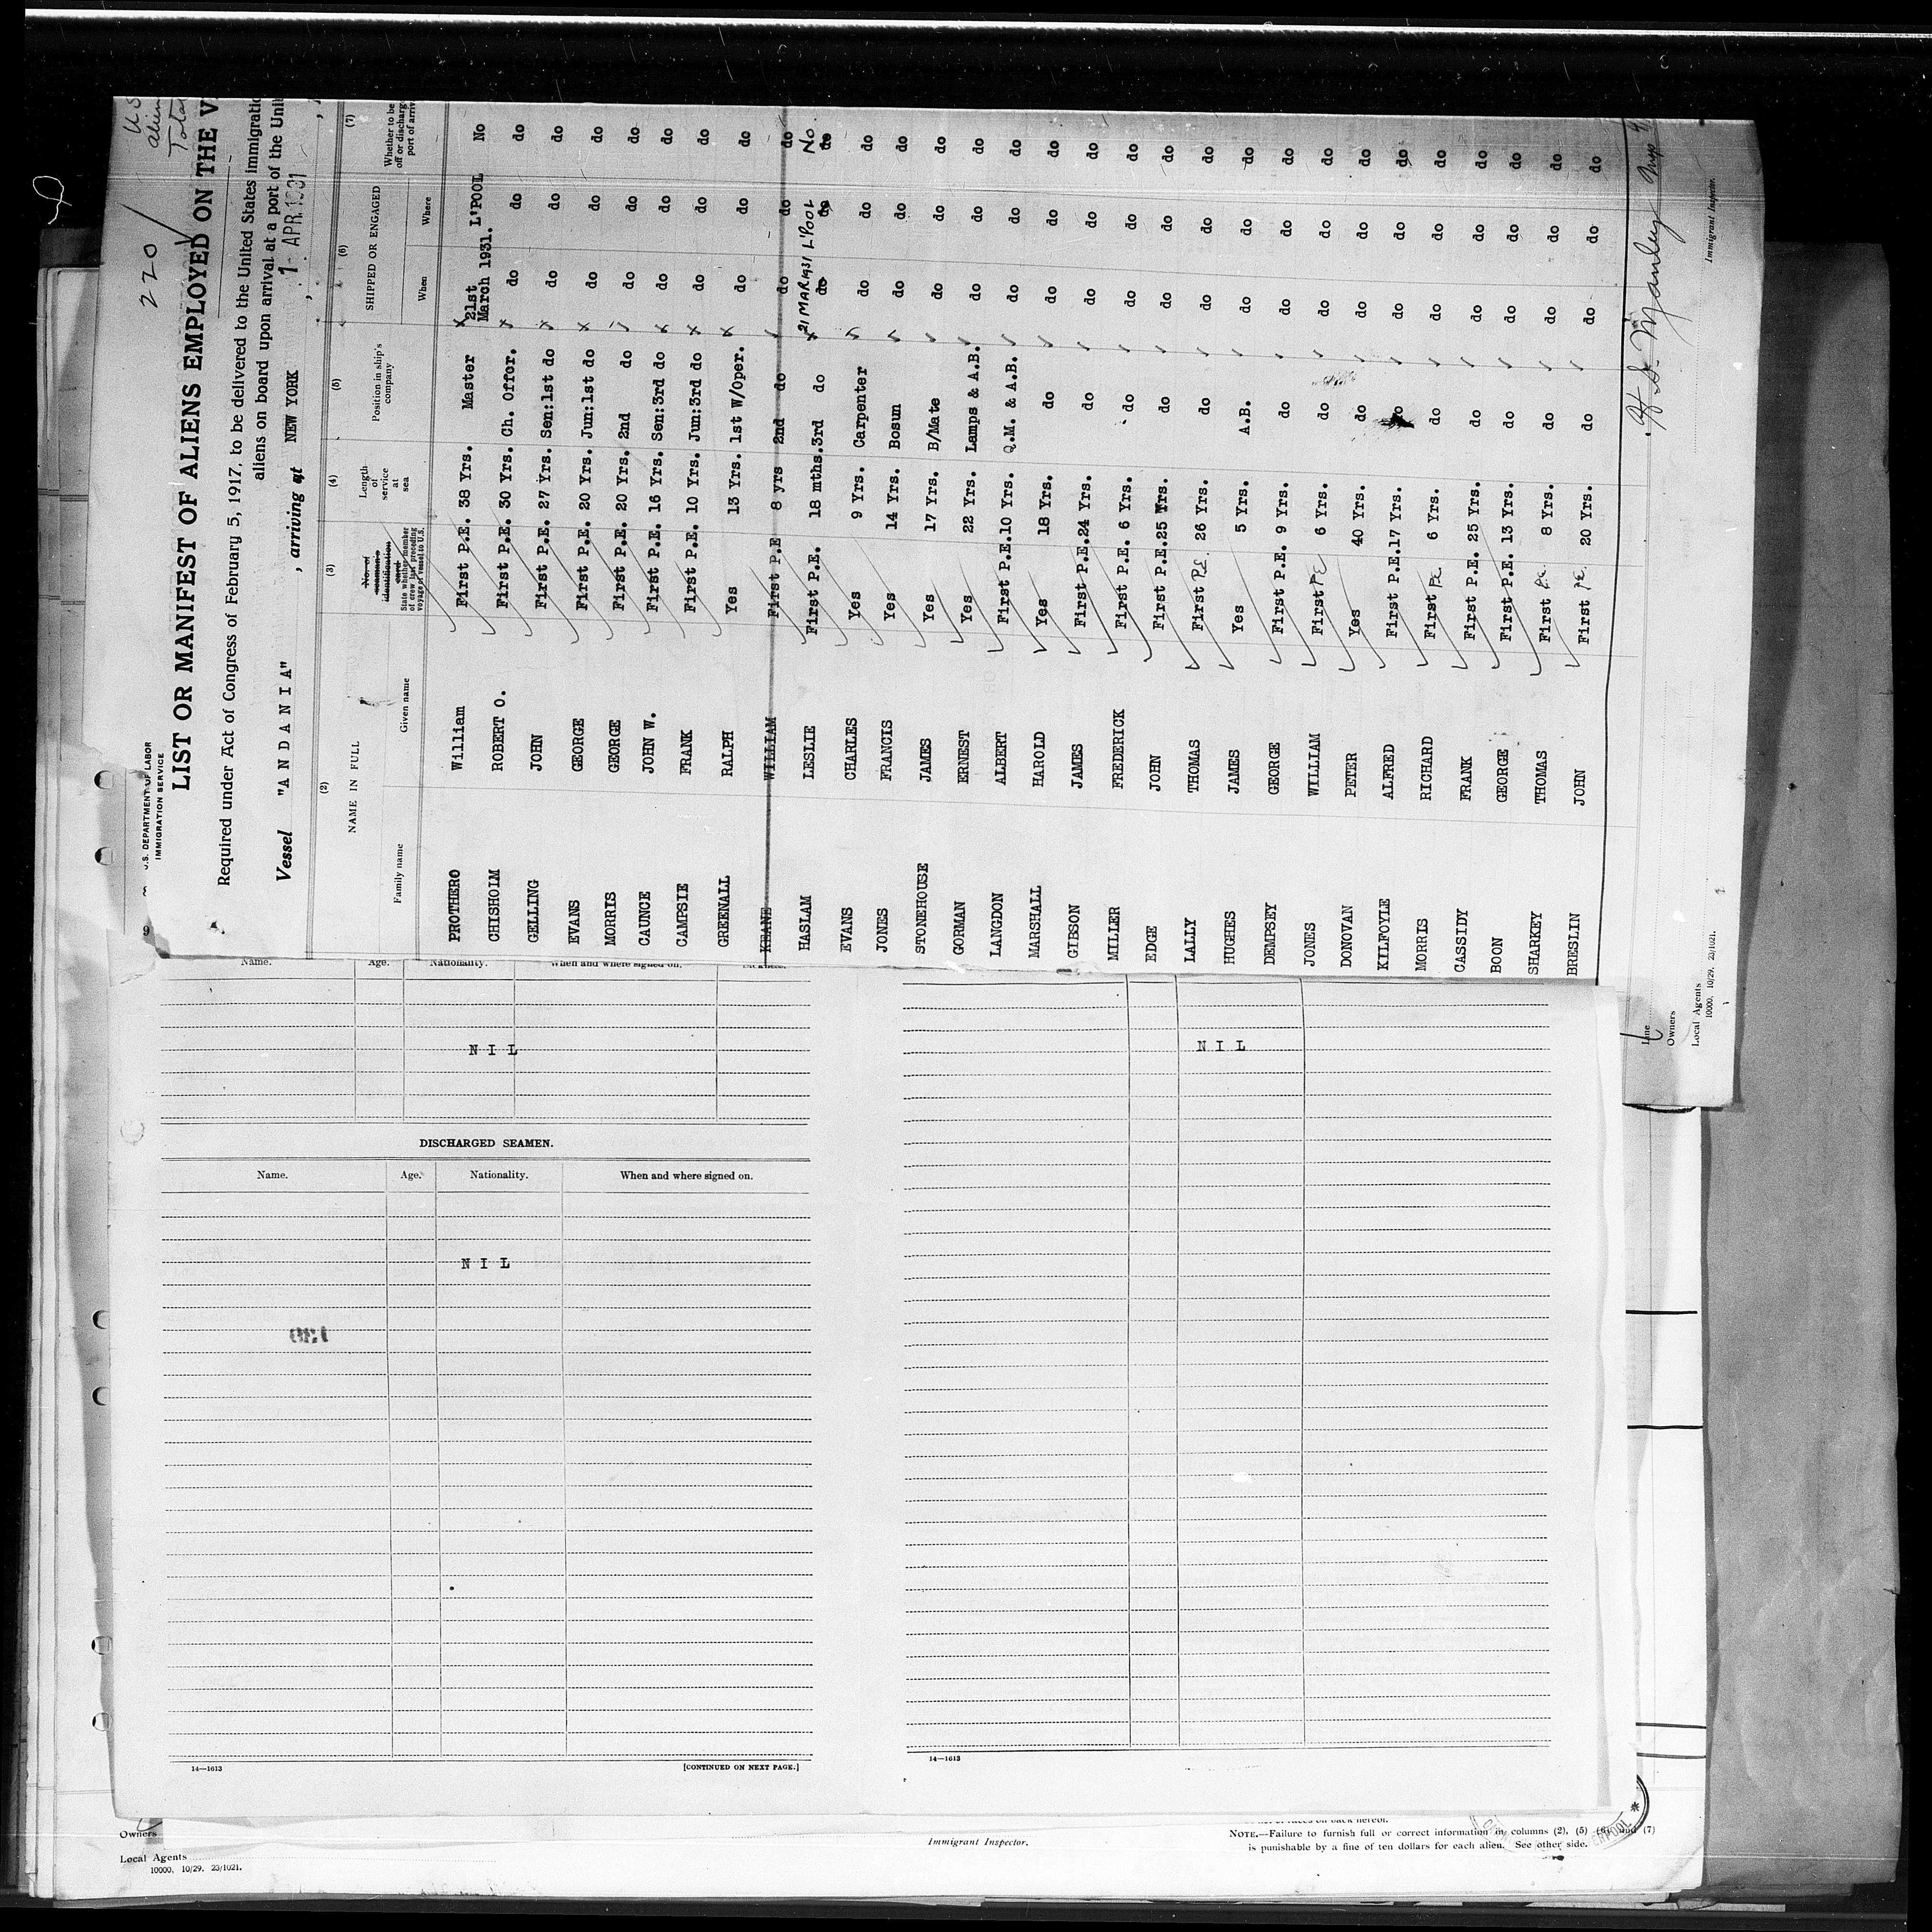 220
U.S. DEPARTMENT OF LABOR
IMMIGRATION SERVICE
LIST OR MANIFEST OF ALIENS EMPLOYED ON THE
Required under Act of Congress of February 5, 1917, to be delivered to the United States
aliens on board upon arrival at a port of the
Vessel "ANDANIA" , arriving at NEW YORK , 1- APR. 1931
(2) (3) (4) (5) (6) (7)
NAME IN FULL
Family name Given name
No. of seaman's identification card
State whether member of crew last preceding voyage of vessel to U.S.
Length of service at sea
Position in ship's company
SHIPPED OR ENGAGED
When Where
Whether to be
off or
port of
PROTHERO William First P.E. 38 Yrs. Master 21st March 1931. L'POOL No
CHISHOIM ROBERT O. First P.E. 30 Yrs. Ch. Offcr. do do do
GELLING JOHN First P.E. 27 Yrs. Sen:1st do do do do
EVANS GEORGE First P.E. 20 Yrs. Jun:1st do do do do
MORRIS GEORGE First P.E. 20 Yrs. 2nd do do do do
CAUNCE JOHN W. First P.E. 16 Yrs. Sen:3rd do do do do
CAMPSIE FRANK First P.E. 10 Yrs. Jun:3rd do do do do
GREENALL RALPH Yes 13 Yrs. 1st W/Oper. do do do
KEANE WILLIAM First P.E 8 yrs 2nd do do do do
HASLAM LESLIE First P.E. 18 mths. 3rd do 21 MAR 1931 L'POOL No.
do do do
EVANS CHARLES Yes 9 Yrs. Carpenter do do do
JONES FRANCIS Yes 14 Yrs. Bosun do do do
STONEHOUSE JAMES Yes 17 Yrs. B/Mate do do do
GORMAN ERNEST Yes 22 Yrs. Lamps & A.B. do do do
LANGDON ALBERT First P.E. 10 Yrs. Q.M. & A.B. do do do
MARSHALL HAROLD Yes 18 Yrs. do do do do
GIBSON JAMES First P.E. 24 Yrs. do do do do
MILLER FREDERICK First P.E. 6 Yrs. do do do do
EDGE JOHN First P.E. 25 Yrs. do do do do
LALLY THOMAS First P.E. 26 Yrs. do do do do
HUGHES JAMES Yes 5 Yrs. A.B. do do do
DEMPSEY GEORGE First P.E. 9 Yrs. do do do do
JONES WILLIAM First P.E 6 Yrs. do do do do
DONOVAN PETER Yes 40 Yrs. do do do do
KILFOYLE ALFRED First P.E. 17 Yrs. do do do do
MORRIS RICHARD First P.E. 6 Yrs. do do do do
CASSIDY FRANK First P.E. 25 Yrs. do do do do
BOON GEORGE First P.E. 13 Yrs. do do do do
SHARKEY THOMAS First P.E. 8 Yrs. do do do do
BRESLIN JOHN First P.E. 20 Yrs. do do do do
Line
Owners
Local Agents
10000. 10/29. 23/1021.
Immigrant Inspector.
Name. Age. Nationality. When and where signed on.
NIL
NIL
DISCHARGED SEAMEN.
Name. Age. Nationality. When and where signed on.
NIL
14—1613 [CONTINUED ON NEXT PAGE.]
14—1613
Owners
Local Agents
10000. 10/29. 23/1021.
Immigrant Inspector.
NOTE.—Failure to furnish full or correct information in columns (2), (5) (6), and (7)
is punishable by a fine of ten dollars for each alien. See other side.